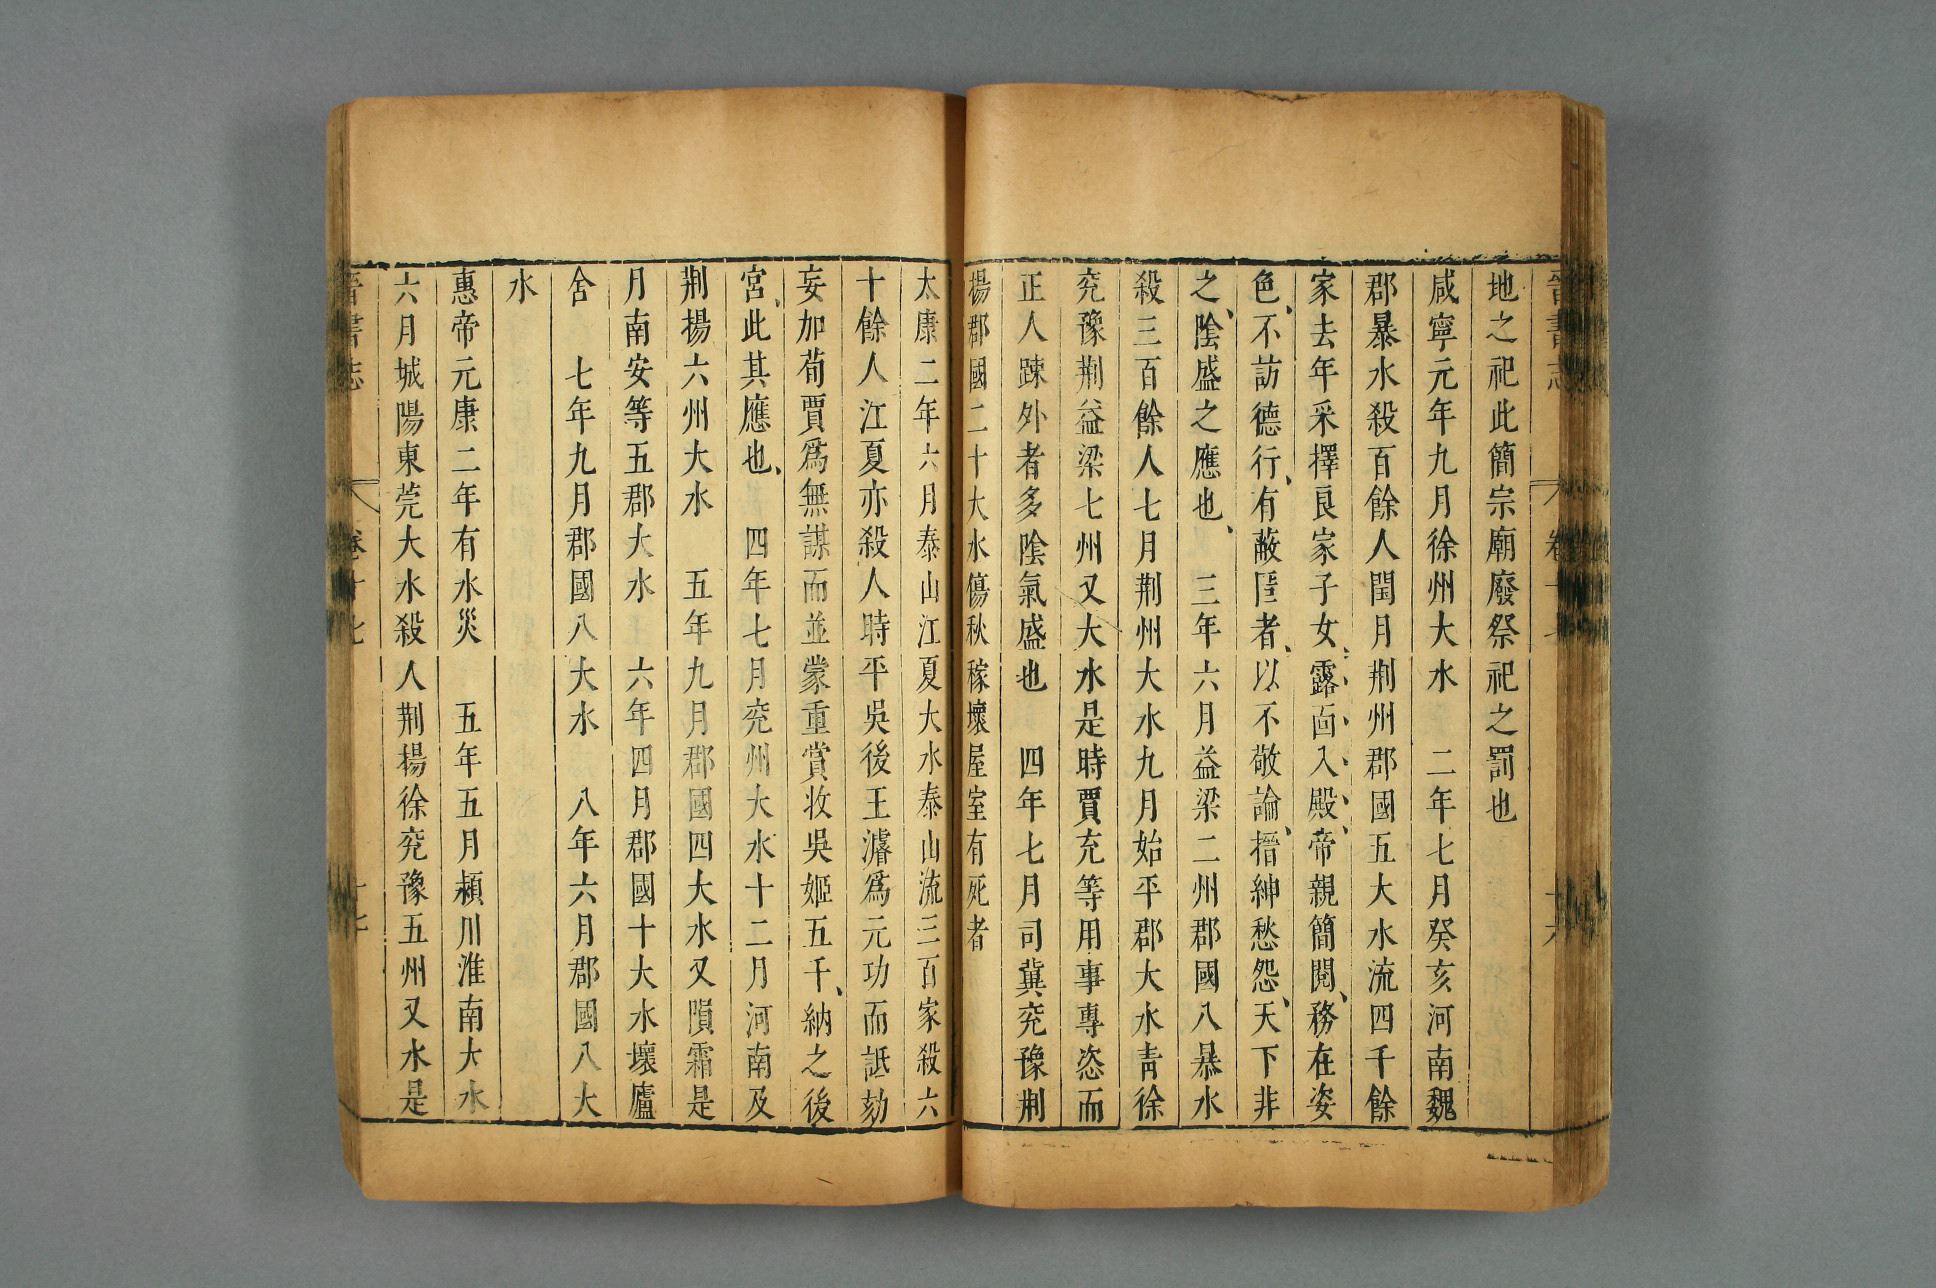 晉書志 卷十七 十六
地之祀此簡宗廟廢祭祀之罰也
咸寧元年九月徐州大水 二年七月癸亥河南魏
郡暴水殺百餘人閏月荆州郡國五大水流四千餘
家去年采擇良家子女、露面入、殿、帝親簡閱、務在姿
色、不訪德行、有蔽匿者、以不敬論、搢紳愁怨、天下非
之、陰盛之應也、 三年六月益梁二州郡國八暴水
殺三百餘人七月荆州大水九月始平郡大水青徐
兗豫荆益梁七州又大水是時賈充等用事專恣而
正人踈外者多陰氣盛也 四年七月司冀兗豫荆
揚郡國二十大水傷秋稼壞屋室有死者
太康二年六月泰山江夏大水泰山流三百家殺六
十餘人江夏亦殺人時平吳後王濬爲元功而詆劾
妄加荀賈爲無謀而並蒙重賞收吳姬五千、納之後
宮、此其應也、 四年七月兗州大水十二月河南及
荆揚六州大水 五年九月郡國四大水又隕霜是
月南安等五郡大水 六年四月郡國十大水壞廬
舍 七年九月郡國八大水 八年六月郡國八大
水
惠帝元康二年有水災 五年五月潁川淮南大水
六月城陽東莞大水殺人荆揚徐兗豫五州又水是
晉書志 卷十七 十七